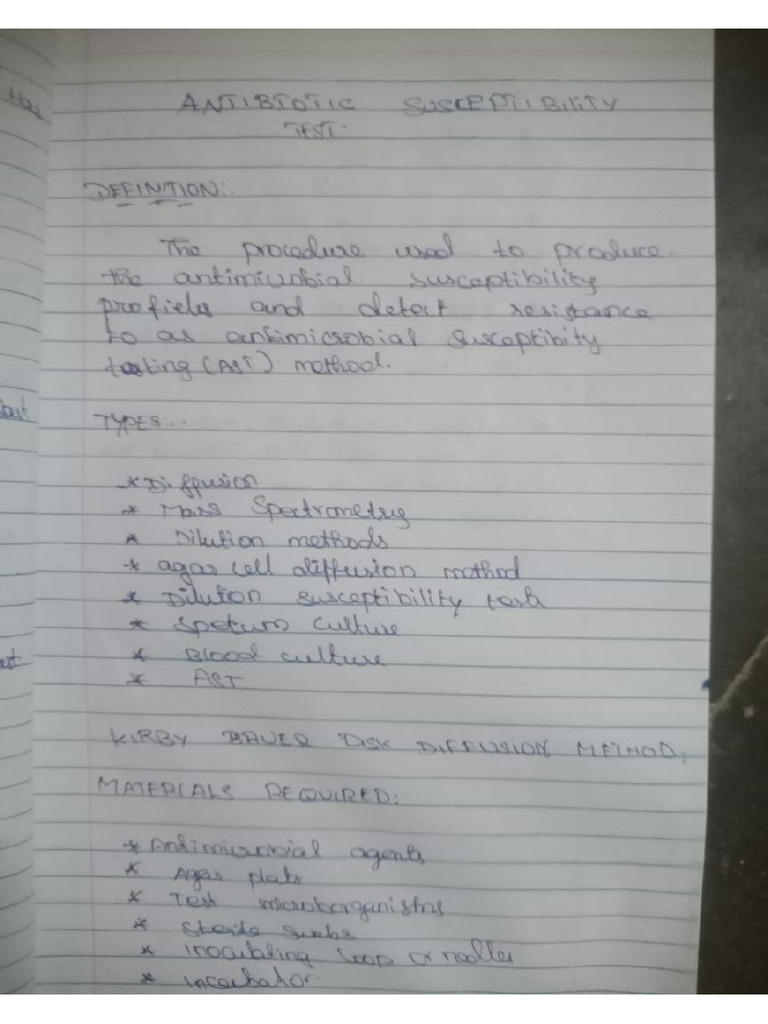 ANTIBIOTIC SUSCEPTIBILITY
TEST.
DEFINITION:.
The procedure used to produce
the antimicrobial susceptibility
profieles and detect resistance
to as antimicrobial susceptibity
testing (AST) method.
TYPES...
* Diffusion
* Mass Spectrometry
* Dilution methods
* agar cell diffusion method
* Dilution susceptibility tests
* Speturn culture
* Blood culture
* AST
KIRBY BAUER DISK DIFFUSION METHOD,
MATERIALS REQUIRED:
* Antimicrobial agents
* Agar plats
* Test microborganisms
* Sterile swabs
* inoculating loop or needles
* incubator.